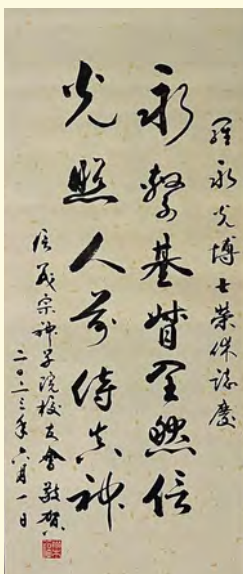 羅永光博士榮休誌慶
永繫基督全然信
光照人前侍真神
信義宗神學院校友會敬賀
二〇二三年六月一日